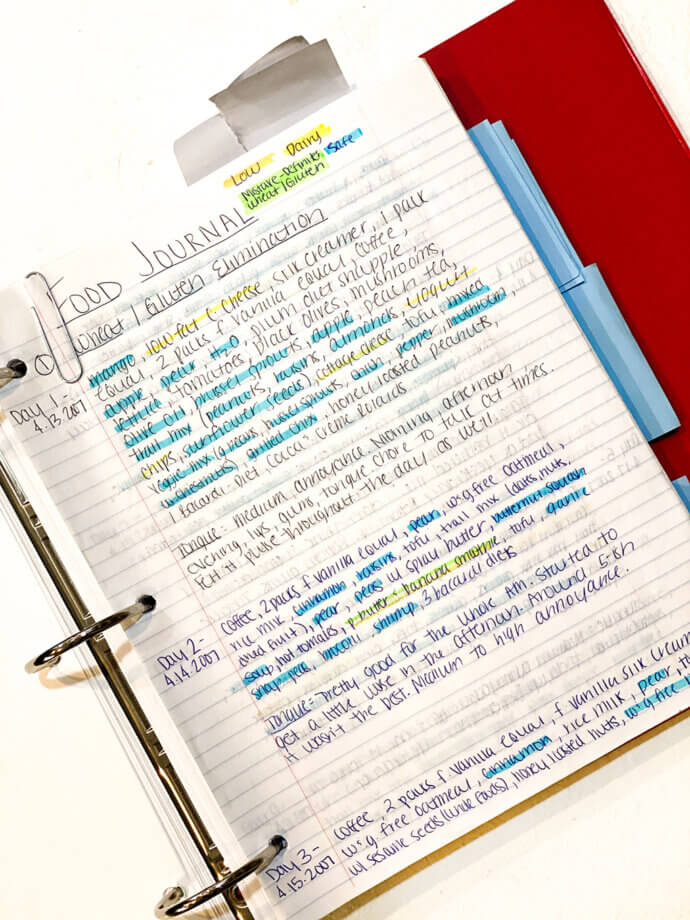 Low Dairy
Mixture-Definite Safe!
Wheat/Gluten
FOOD JOURNAL
① Wheat/Gluten Elimination
Day 1-
4.13.2007
mango, low-fat f. cheese, silk creamer, 1 pack
equal, 2 packs f. vanilla equal, coffee,
apple, pear, H2O, plum diet snapple,
lettuce, tomatoes, black olives, mushrooms,
olive oil, brussel sprouts, apple, peach tea,
trail mix (peanuts, raisins, almonds, yogurt
chips, sunflower seeds), cottage cheese, tofu, mixed
veggie mix (g. beans, brussel sprouts, onion, pepper, mushrooms,
w. chestnuts), grilled chips, honey roasted peanuts,
1 Bacardi- Diet Coca's Creme Bacardis
Tongue- medium, annoyance. Morning, afternoon
evening, lips, gums, tongue. Chore to talk at times.
Felt it pulse throughout the day as well.
Day 2-
4.14.2007
coffee, 2 packs f. vanilla equal, pear, w&g free oatmeal,
rice milk, cinnamon, raisins, tofu, trail mix (dates, nuts,
dried fruit), pear, peas w/ spray butter, butternut squash
soup, hot tomales, p. butter & banana smoothie, tofu, game
snap-peas, broccoli, shrimp, 3 bacardi diets
Tongue- Pretty good for the whole AM. Started to
get a little worse in the afternoon. Around 5-6h
it wasn't the best. Medium to high annoyance.
Day 3-
4.15.2007
coffee, 2 packs f. vanilla equal, f. vanilla silk cream
w&g free oatmeal, cinnamon, rice milk, pear, to
w/ sesame seeds (whole foods), honey roasted nuts, w&g free